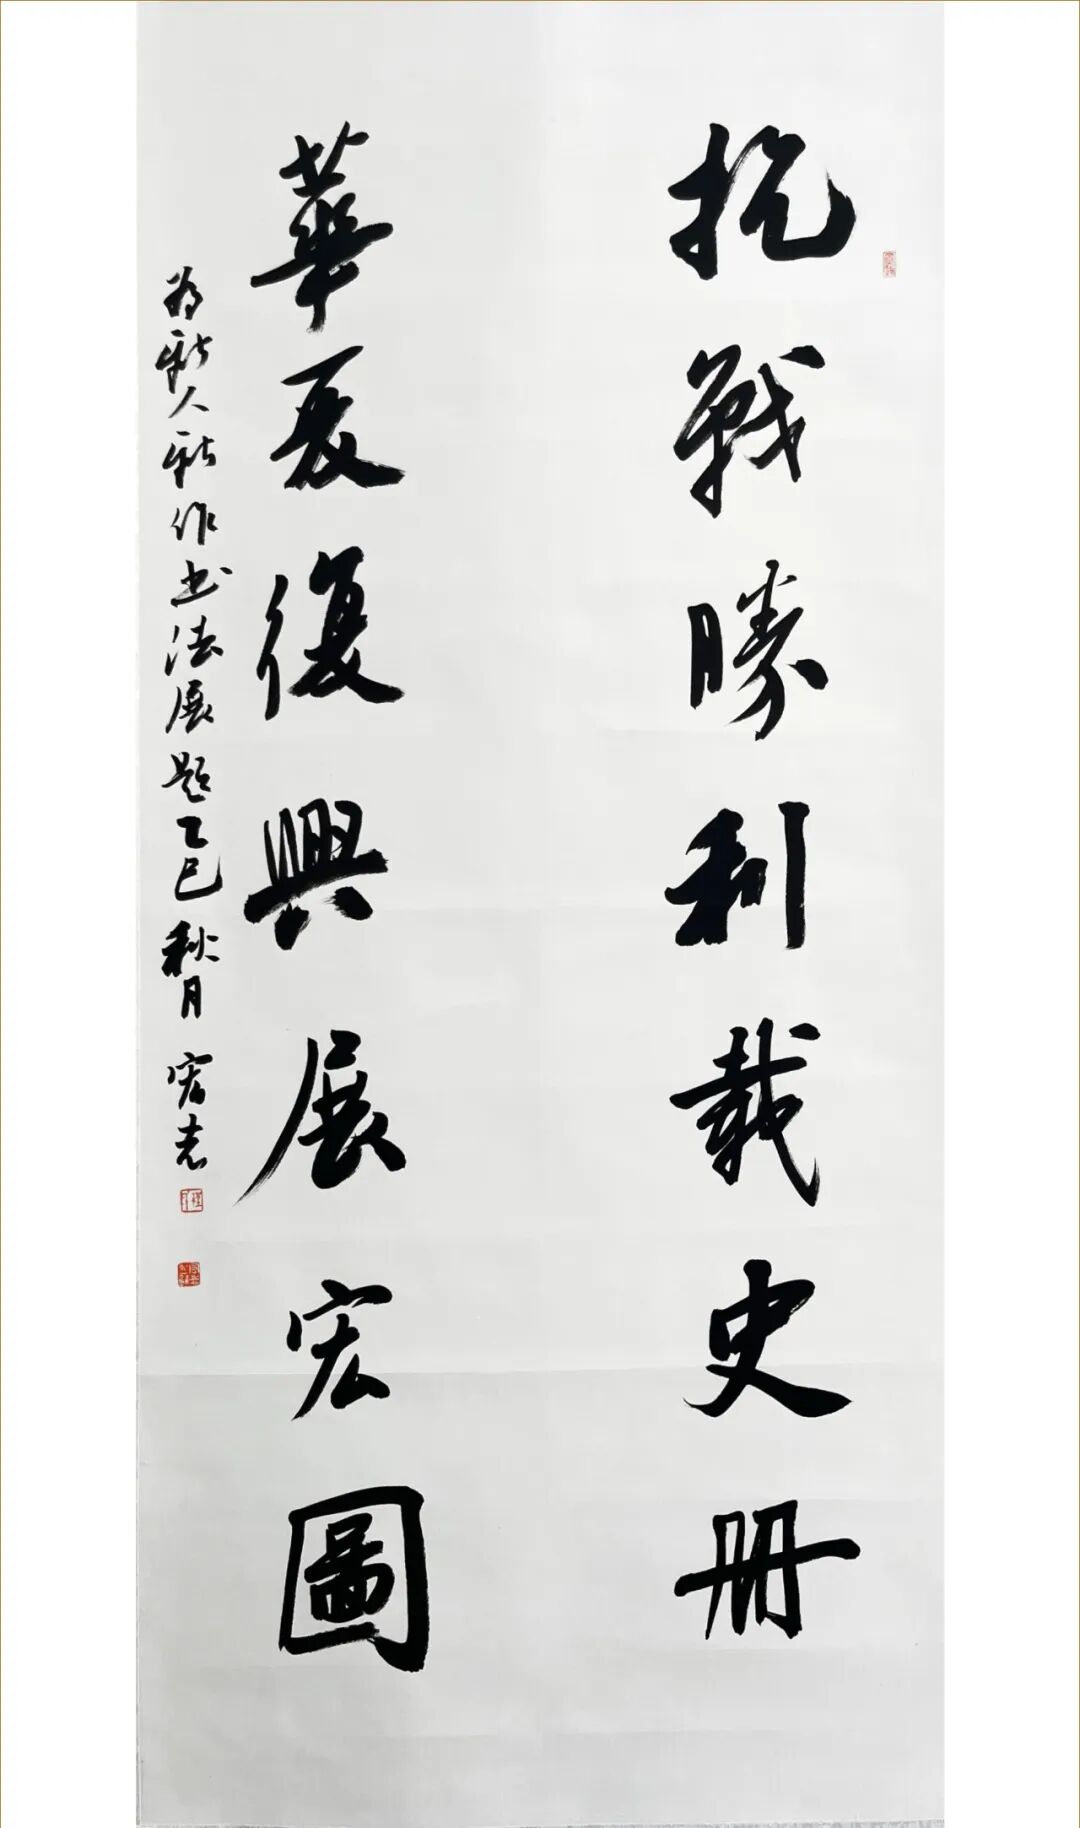 抗戰勝利載史冊
華夏復興展宏圖
为新人新作书法展题乙巳秋月宏志